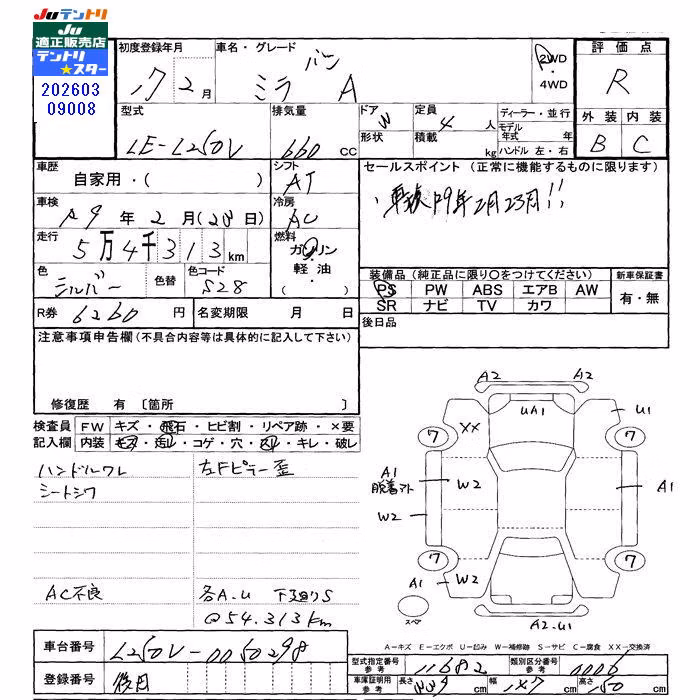 Juテントリ
Ju
適正販売店
テントリ
★スター
202603
09008
初度登録年月
17 2月
車名・グレード
バン
ミラ A
2WD
・
4WD
評価点
R
外装 内装
B C
型式
LE-L250V
排気量
660 cc
ドア
形状
定員
4 人
積載
kg
ディーラー・並行
モデル
年式 年
ハンドル 左・右
車歴
自家用・( )
シフト
AT
車検
R9年2月(28日)
冷房
AC
走行
5万4千313km
燃料
ガソリン
・
軽油
・
色
シルバー
色替
色コード
S28
R券 6260 円
名変期限 月 日
セールスポイント(正常に機能するものに限ります)
車検R9年2月23日!!
装備品(純正品に限り○をつけてください)
PS PW ABS エアB AW
SR ナビ TV カワ
新車保証書
有・無
後日品
注意事項申告欄(不具合内容等は具体的に記入して下さい)
修復歴 有〔箇所 〕
検査員
記入欄
FW キズ・飛石・ヒビ割・リペア跡・×要
内装 キズ・汚レ・コゲ・穴・スレ・キレ・破レ
ハンドルワレ
シートシワ
左Fピラー歪
AC不良
各A.U 下廻りS
@54.313Km
A2 A2
UA1
U1
XX
7 7
A1
脱着アト
W2
W2
A1
7 7
A1
W2
スペア
A2.U1
A-キズ E-エクボ U-凹み W-補修跡 S-サビ C-腐食 XX-交換済
車台番号
L250V-0050298
登録番号
後日
型式指定番号
参考
11682
類別区分番号
参考
0006
車庫証明用
参考
長さ
339 cm
幅
147 cm
高さ
150 cm